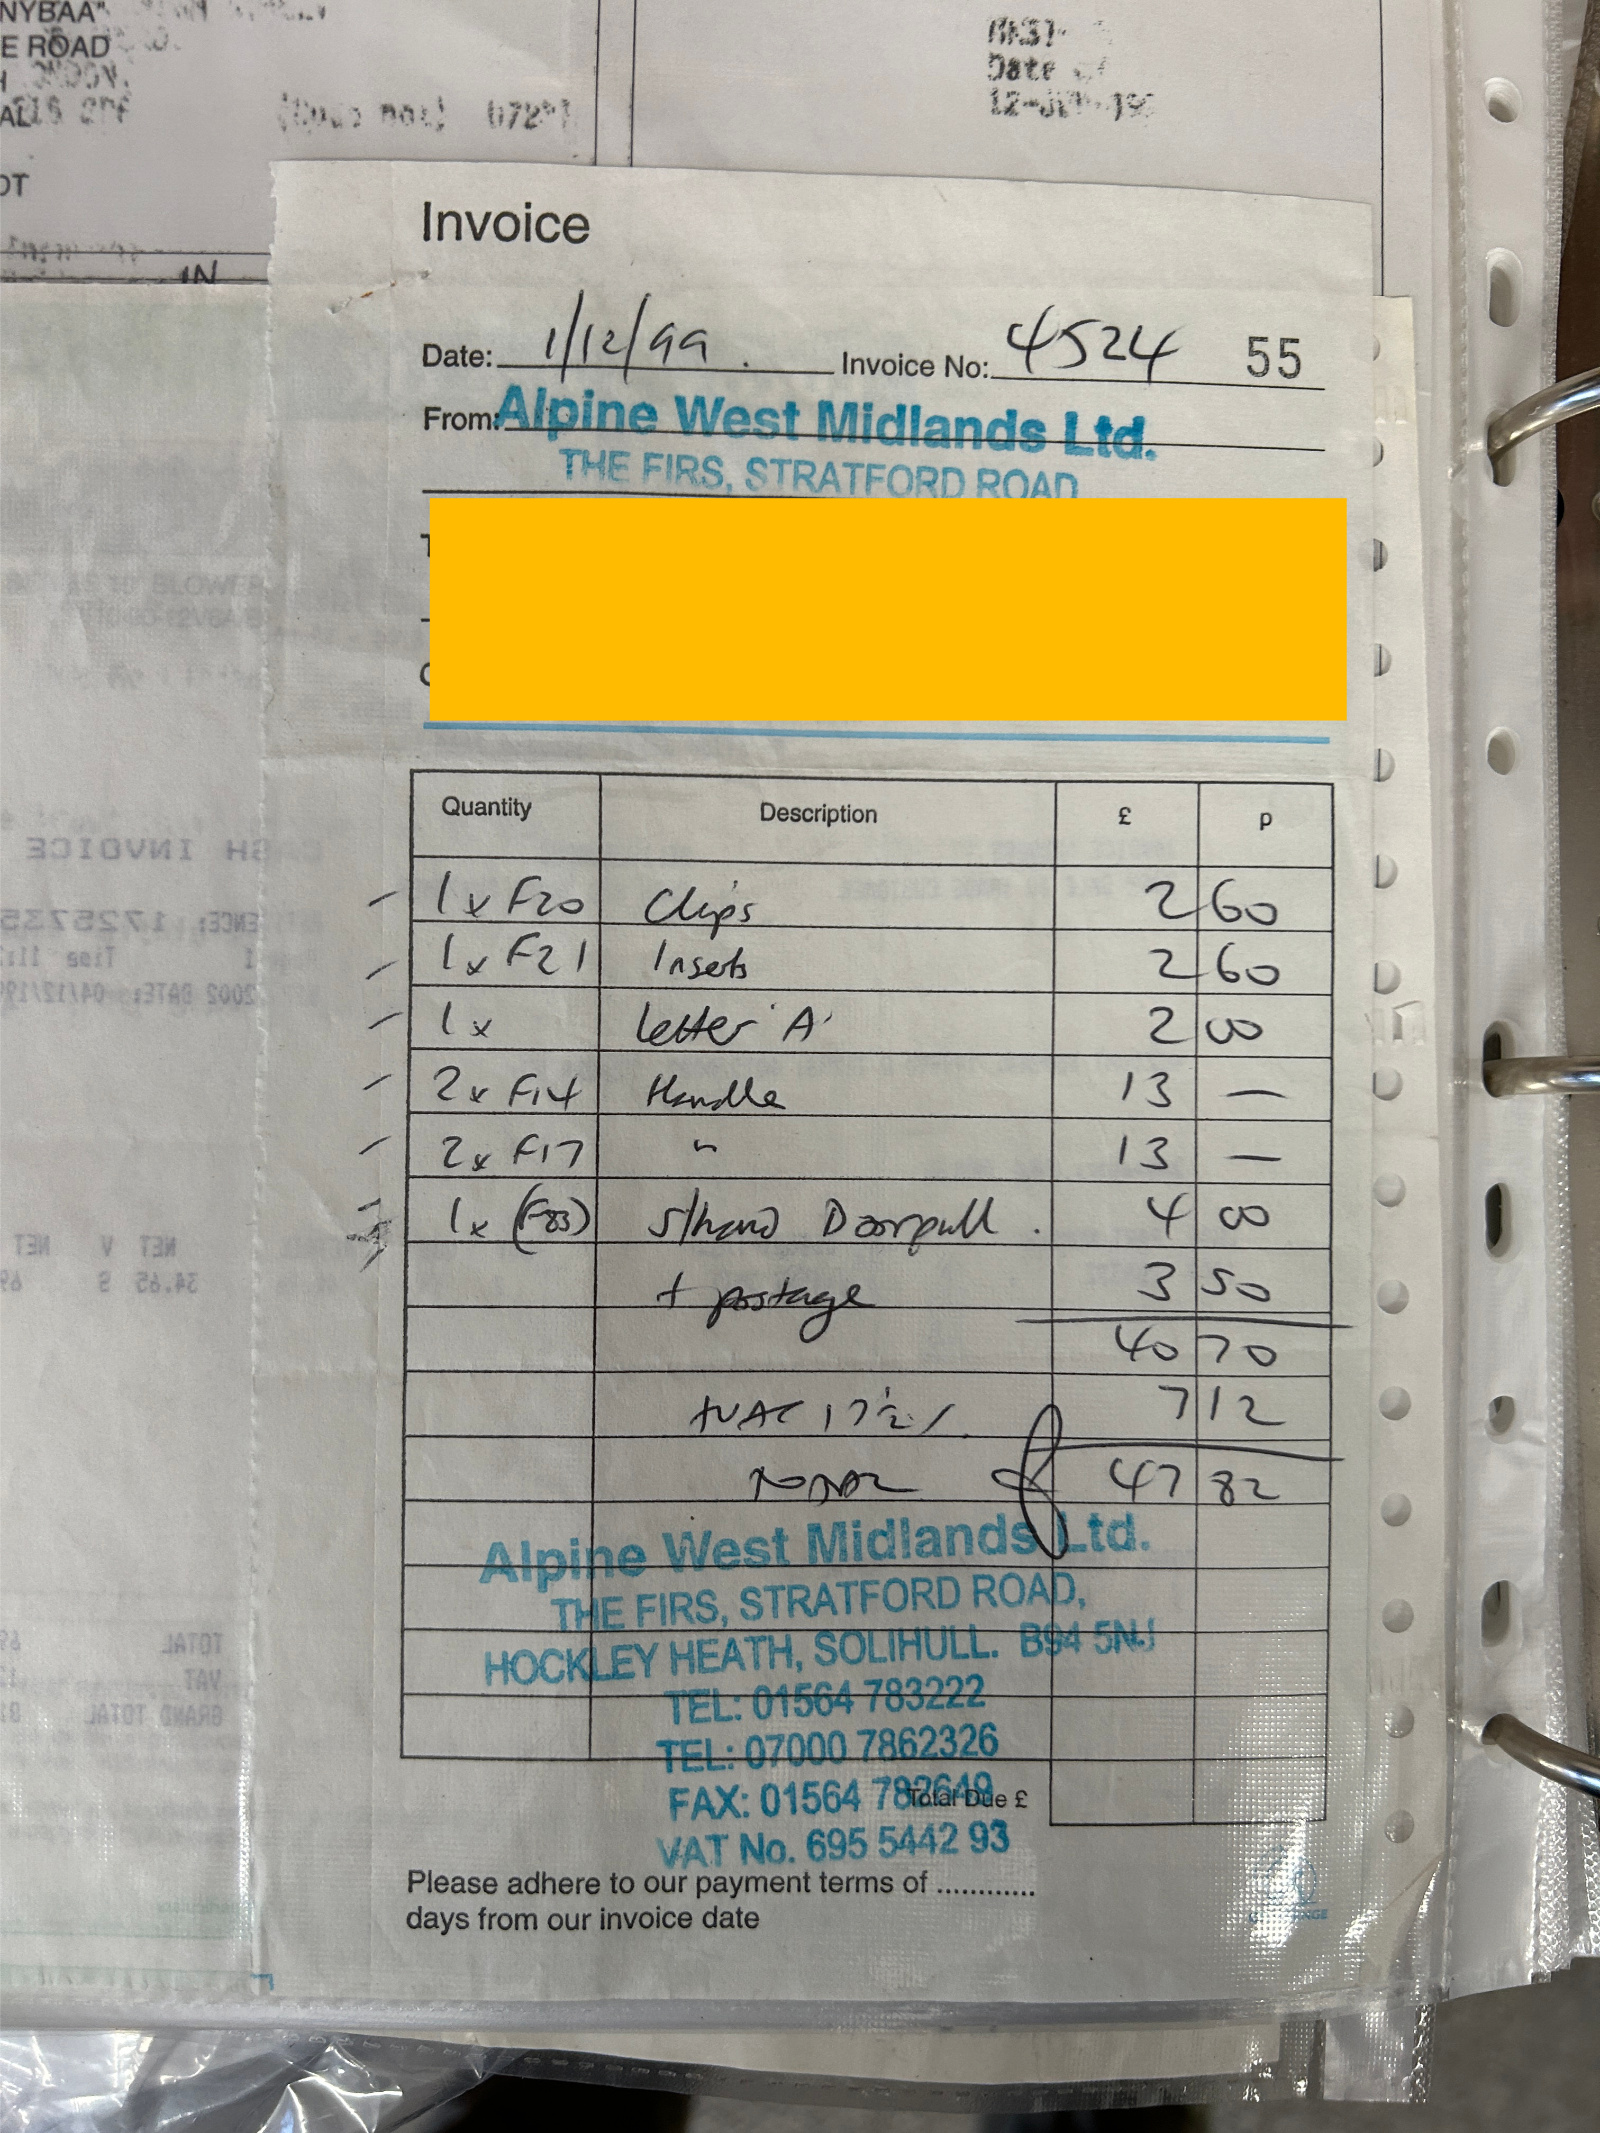 NYBAA"
E ROAD
OT
Date
IN
Invoice
Date: 1/12/99. Invoice No: 4524 55
From: Alpine West Midlands Ltd.
THE FIRS, STRATFORD ROAD
Quantity Description £ p
1 x F20 Clips 2 60
1 x F21 Inserts 2 60
1 x Letter 'A' 2 00
2 x F14 Handle 13 —
2 x F17 " 13 —
1 x (F83) s/hand Doorpull. 4 00
+ postage 3 50
40 70
+VAT 17½% 7 12
TOTAL £ 47 82
Alpine West Midlands Ltd.
THE FIRS, STRATFORD ROAD,
HOCKLEY HEATH, SOLIHULL. B94 5NJ
TEL: 01564 783222
TEL: 07000 7862326
FAX: 01564 782649
Total Due £
VAT No. 695 5442 93
Please adhere to our payment terms of ............
days from our invoice date
CASH INVOICE
1725735
NET V NET
34.65 S
TOTAL
VAT
GRAND TOTAL